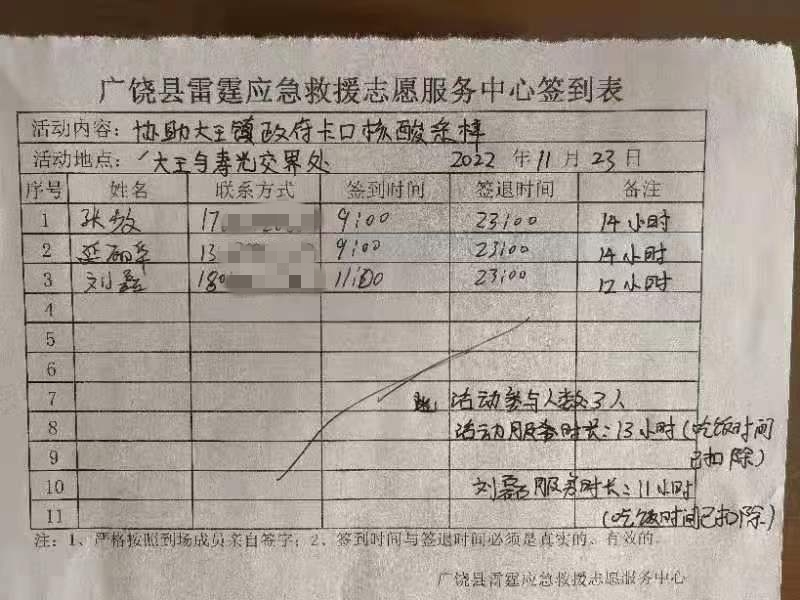 广饶县雷霆应急救援志愿服务中心签到表
活动内容: 协助大王镇政府卡口核酸采样
活动地点: 大王与寿光交界处 2022 年 11 月 23 日
序号 姓名 联系方式 签到时间 签退时间 备注
1 张敏 17 9:00 23:00 14小时
2 延丽华 13 9:00 23:00 14小时
3 刘磊 180 11:00 23:00 12小时
4
5
6
7 活动参与人数3人
8 活动服务时长:13小时(吃饭时间
9 已扣除)
10 刘磊服务时长:11小时
11 (吃饭时间已扣除)
注:1、严格按照到场成员亲自签字;2、签到时间与签退时间必须是真实的、有效的。
广饶县雷霆应急救援志愿服务中心